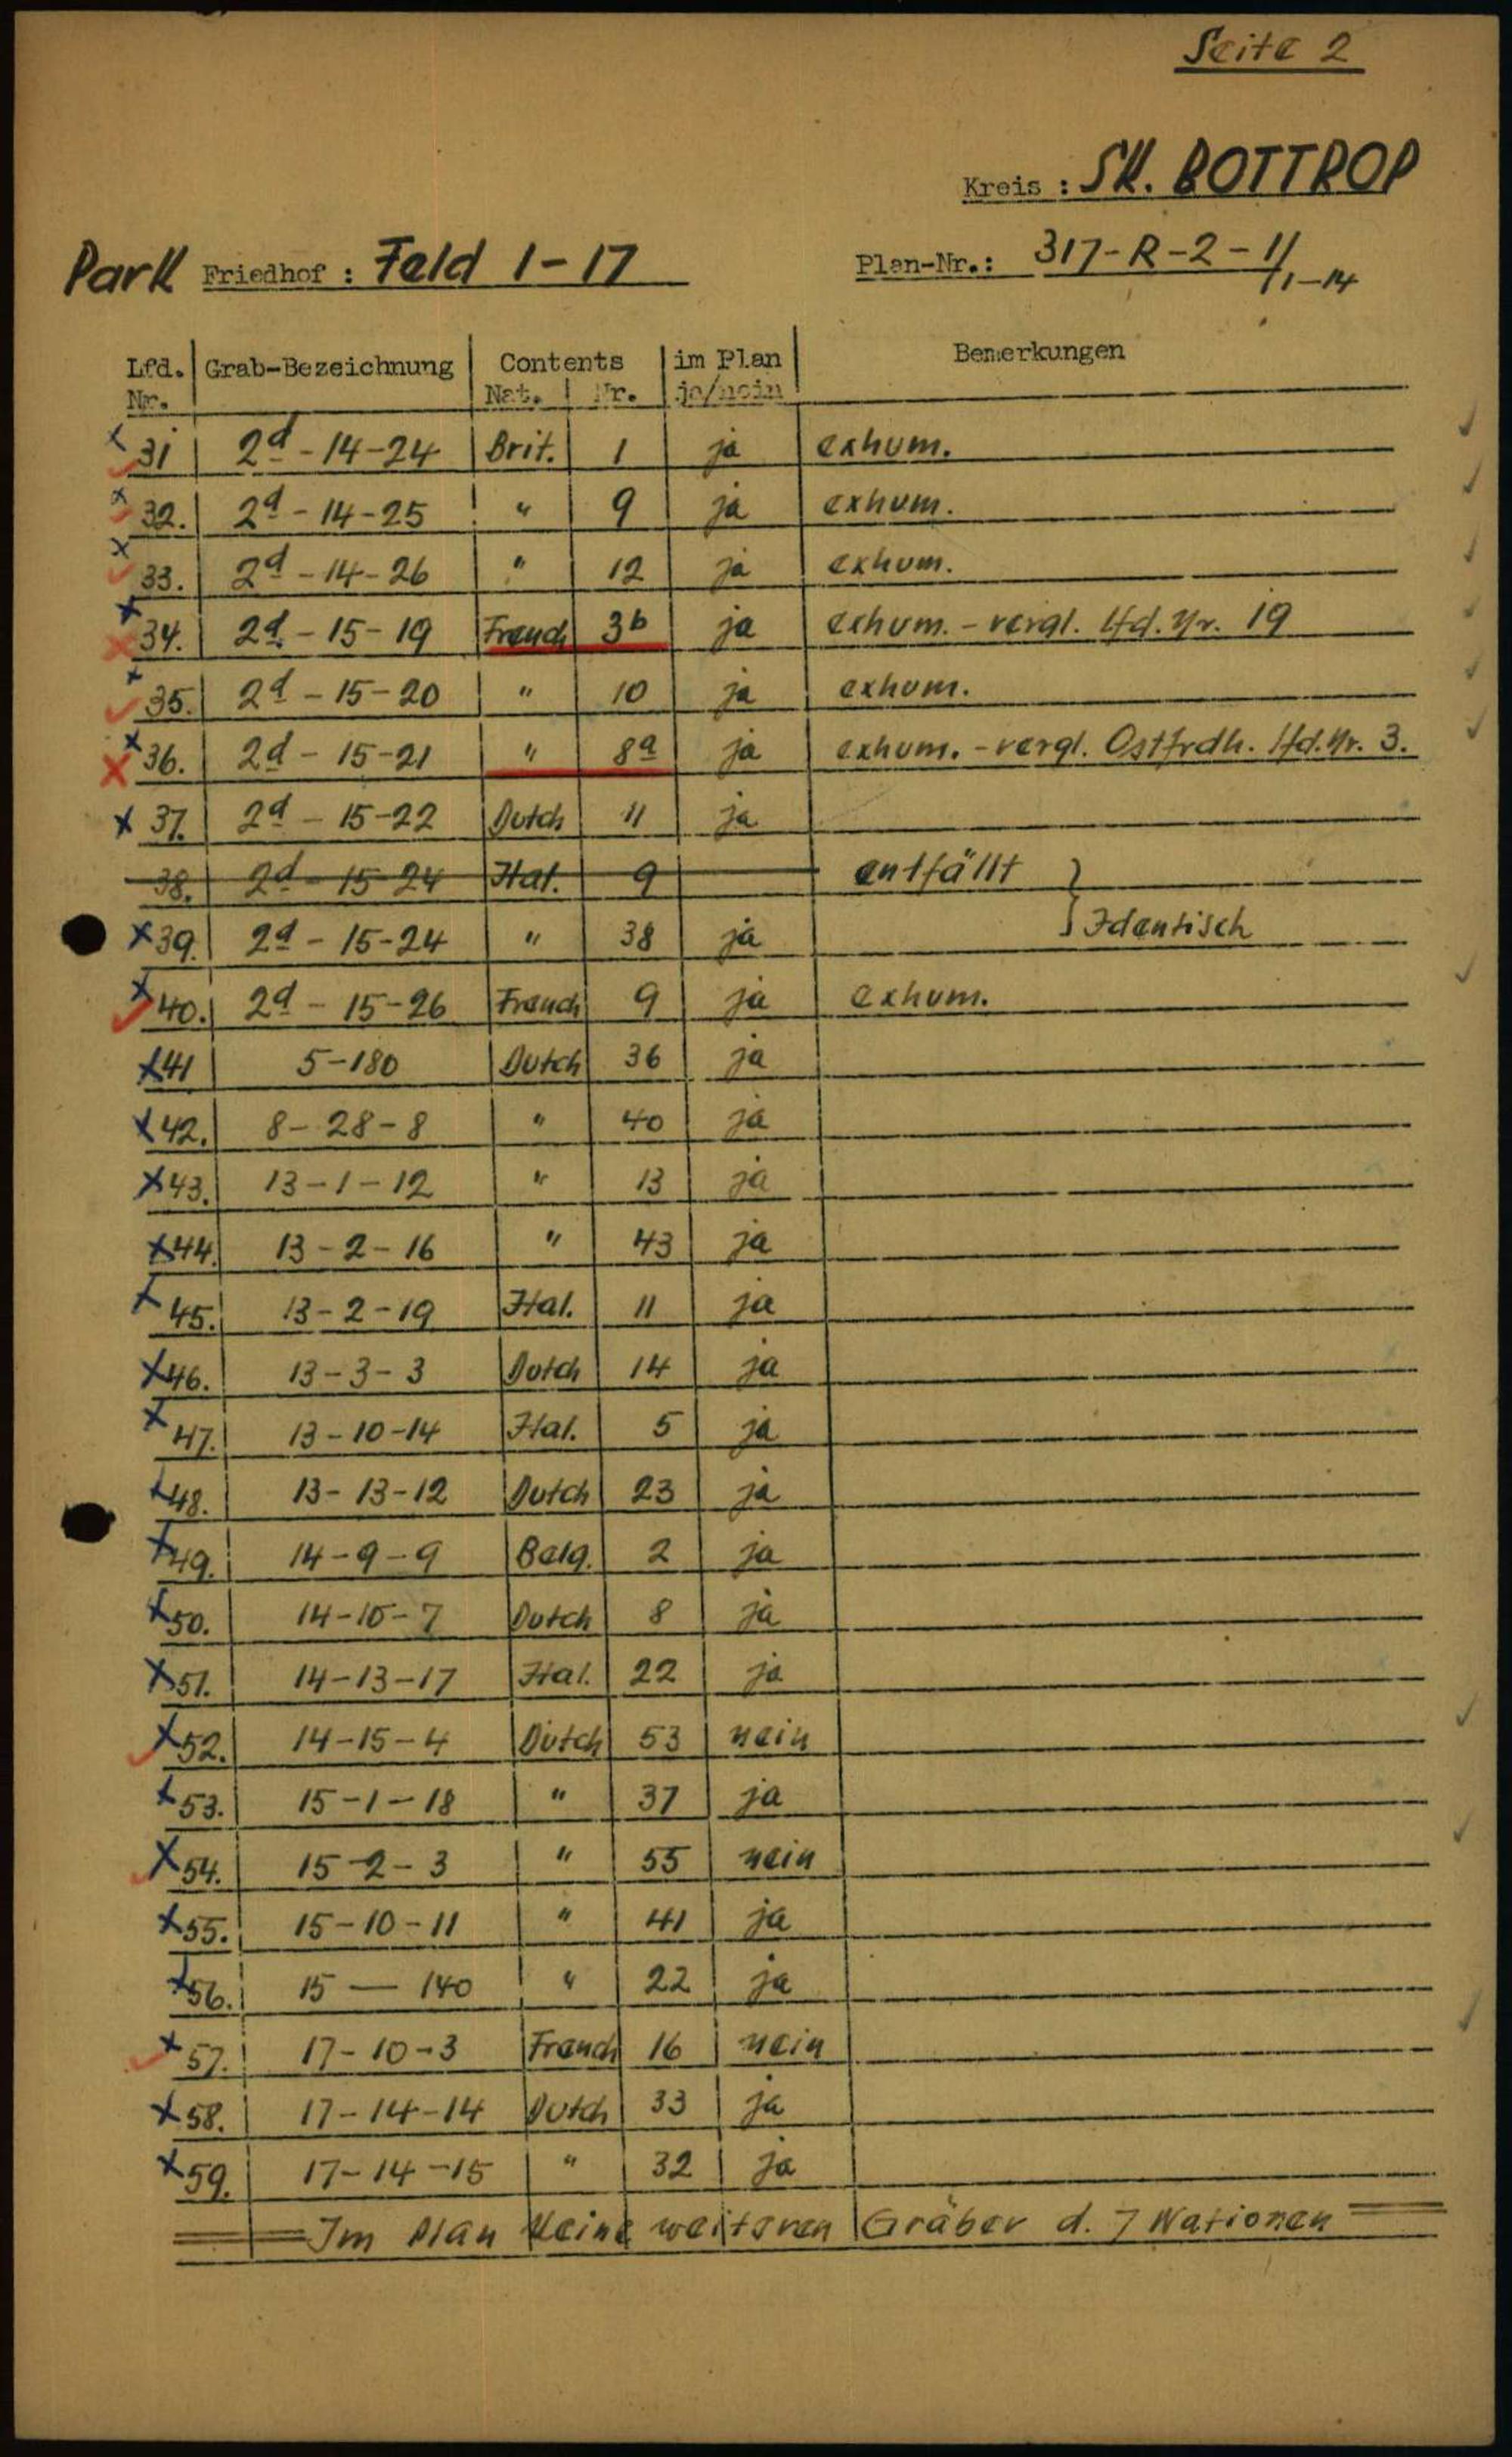 Seite 2
Kreis : SK. BOTTROP
Park Friedhof : Feld 1-17 Plan-Nr.: 317-R-2-1/1-14
Lfd. Nr. Grab-Bezeichnung Contents Nat. Nr. im Plan ja/nein Bemerkungen
31 2d-14-24 Brit. 1 ja exhum.
32. 2d-14-25 " 9 ja exhum.
33. 2d-14-26 " 12 ja exhum.
34. 2d-15-19 French 3b ja exhum. - vergl. lfd. Nr. 19
35. 2d-15-20 " 10 ja exhum.
36. 2d-15-21 " 8a ja exhum. - vergl. Ostfrdh. lfd. Nr. 3.
37. 2d-15-22 Dutch 11 ja
38. 2d-15-24 Ital. 9 entfällt }
39. 2d-15-24 " 38 ja } Identisch
40. 2d-15-26 French 9 ja exhum.
41 5-180 Dutch 36 ja
42. 8-28-8 " 40 ja
43. 13-1-12 " 13 ja
44. 13-2-16 " 43 ja
45. 13-2-19 Ital. 11 ja
46. 13-3-3 Dutch 14 ja
47. 13-10-14 Ital. 5 ja
48. 13-13-12 Dutch 23 ja
49. 14-9-9 Belg. 2 ja
50. 14-10-7 Dutch 8 ja
51. 14-13-17 Ital. 22 ja
52. 14-15-4 Dutch 53 nein
53. 15-1-18 " 37 ja
54. 15-2-3 " 55 nein
55. 15-10-11 " 41 ja
56. 15 — 140 " 22 ja
57. 17-10-3 French 16 nein
58. 17-14-14 Dutch 33 ja
59. 17-14-15 " 32 ja
Im Plan keine weiteren Gräber d. 7 Nationen